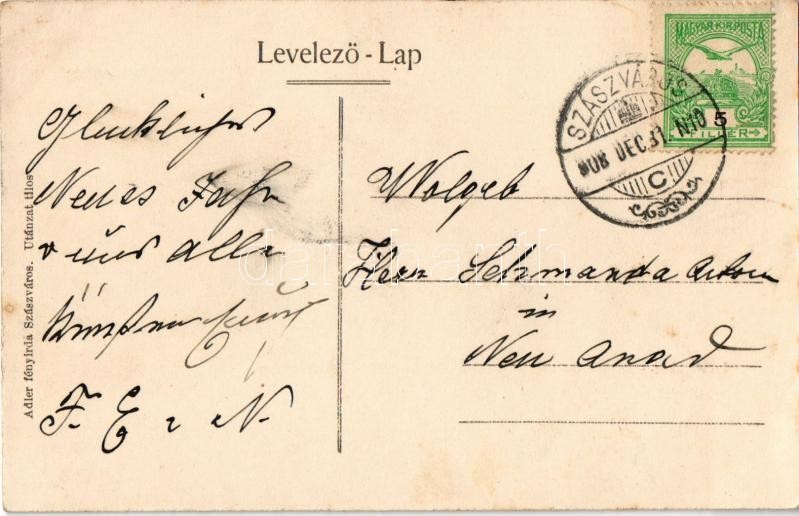 Levelező - Lap
MAGYAR KIR. POSTA
5
FILLÉR
SZÁSZVÁROS
908 DEC. 31. N10
C
Glückliches
Neues Jahr
und alle
F. E. N.
Wolgeb
Herr Schmanda Anton
in
Neu Arad
Adler fényirda Szászváros. Utánzat tilos
darabanth